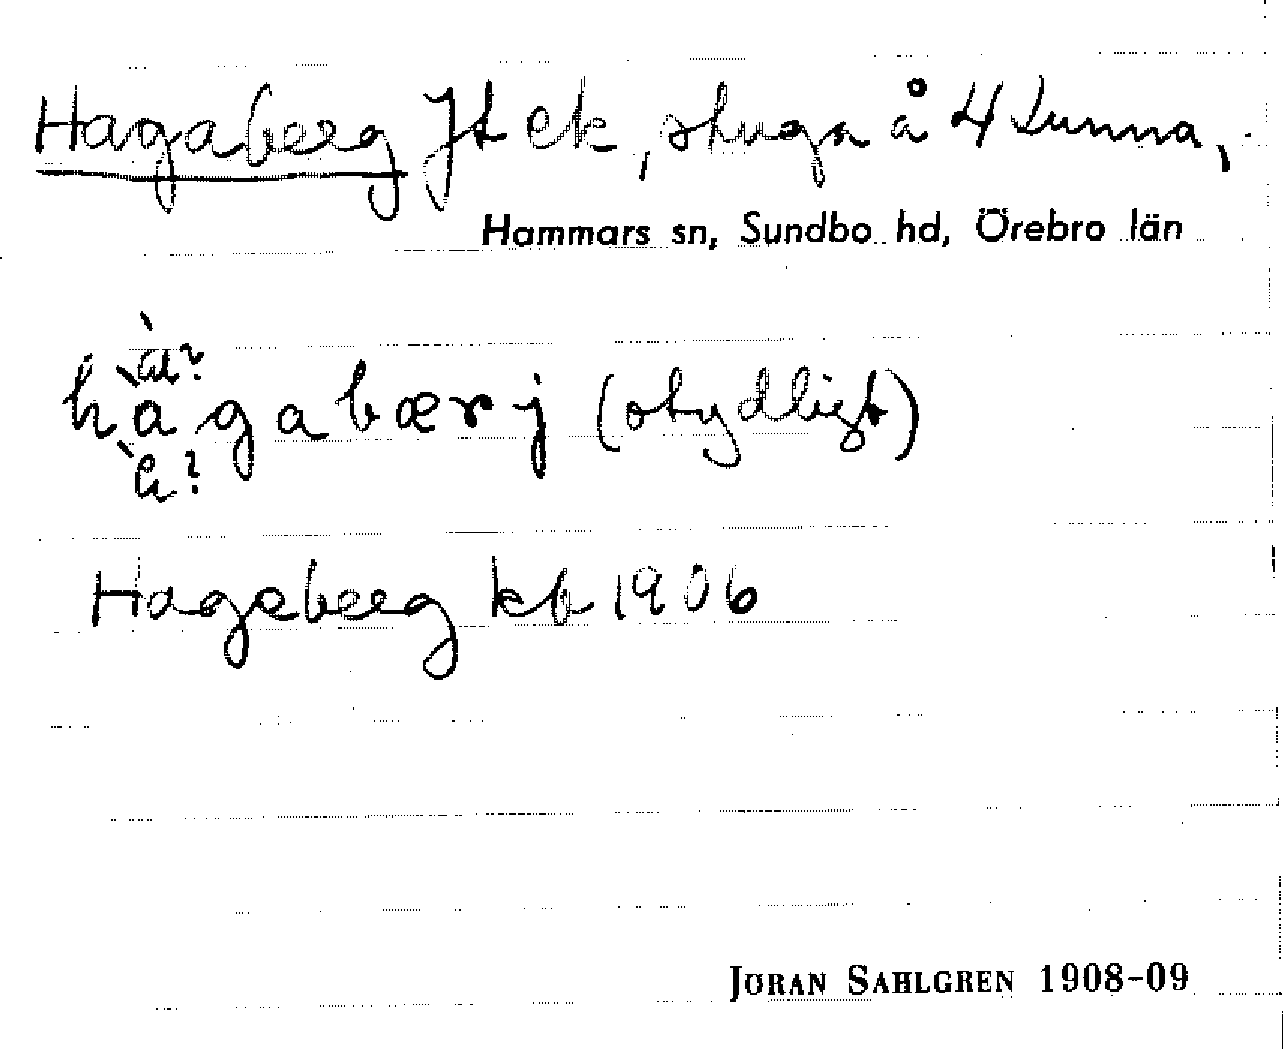 Hagaberg Jt ek, stuga å 4 Lunna,
Hammars sn, Sundbo hd, Örebro län
à?
hàgabærj (otydligt)
à?
Hageberg kb 1906
JÖRAN SAHLGREN 1908-09